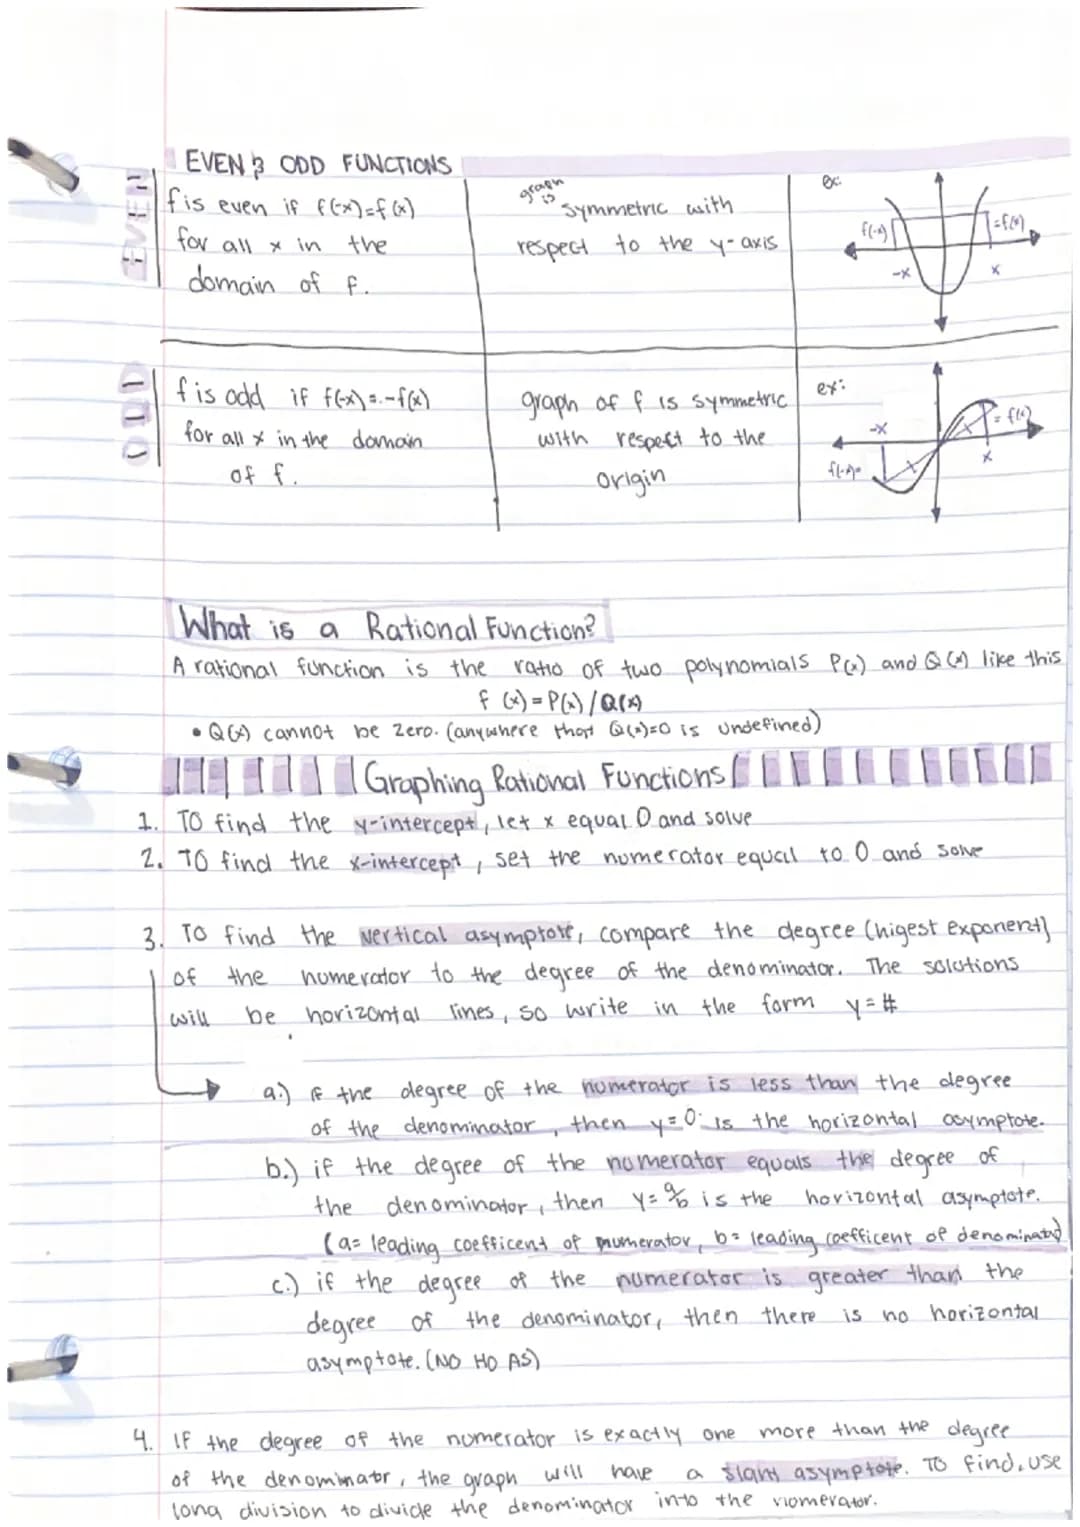 EVEN & ODD FUNCTIONS
EVEN
f is even if f(-x)=f(x)
for all x in the
domain of f.
graph is
symmetric with
respect to the y-axis
ex:
f(-x)
=f(x)
-x
x
ODD
f is odd if f(-x)=-f(x)
for all x in the domain
of f.
graph of f is symmetric
with respect to the
origin
ex:
-x
= f(x)
x
f(-x)=
What is a Rational Function?
A rational function is the ratio of two polynomials P(x) and Q(x) like this
f(x)=P(x)/Q(x)
• Q(x) cannot be zero. (anywhere that Q(x)=0 is undefined)
Graphing Rational Functions
1. To find the y-intercept, let x equal 0 and solve
2. To find the x-intercept, set the numerator equal to 0 and solve
3. To find the vertical asymptote, compare the degree (higest exponent)
of the numerator to the degree of the denominator. The solutions
will be horizontal lines, so write in the form y=#
a.) if the degree of the numerator is less than the degree
of the denominator, then y=0 is the horizontal asymptote.
b.) if the degree of the numerator equals the degree of
the denominator, then y=a/b is the horizontal asymptote.
(a= leading coefficent of numerator, b= leading coefficent of denominator)
c.) if the degree of the numerator is greater than the
degree of the denominator, then there is no horizontal
asymptote. (NO HO AS)
4. If the degree of the numerator is exactly one more than the degree
of the denominator, the graph will have a slant asymptote. To find, use
long division to divide the denominator into the numerator.